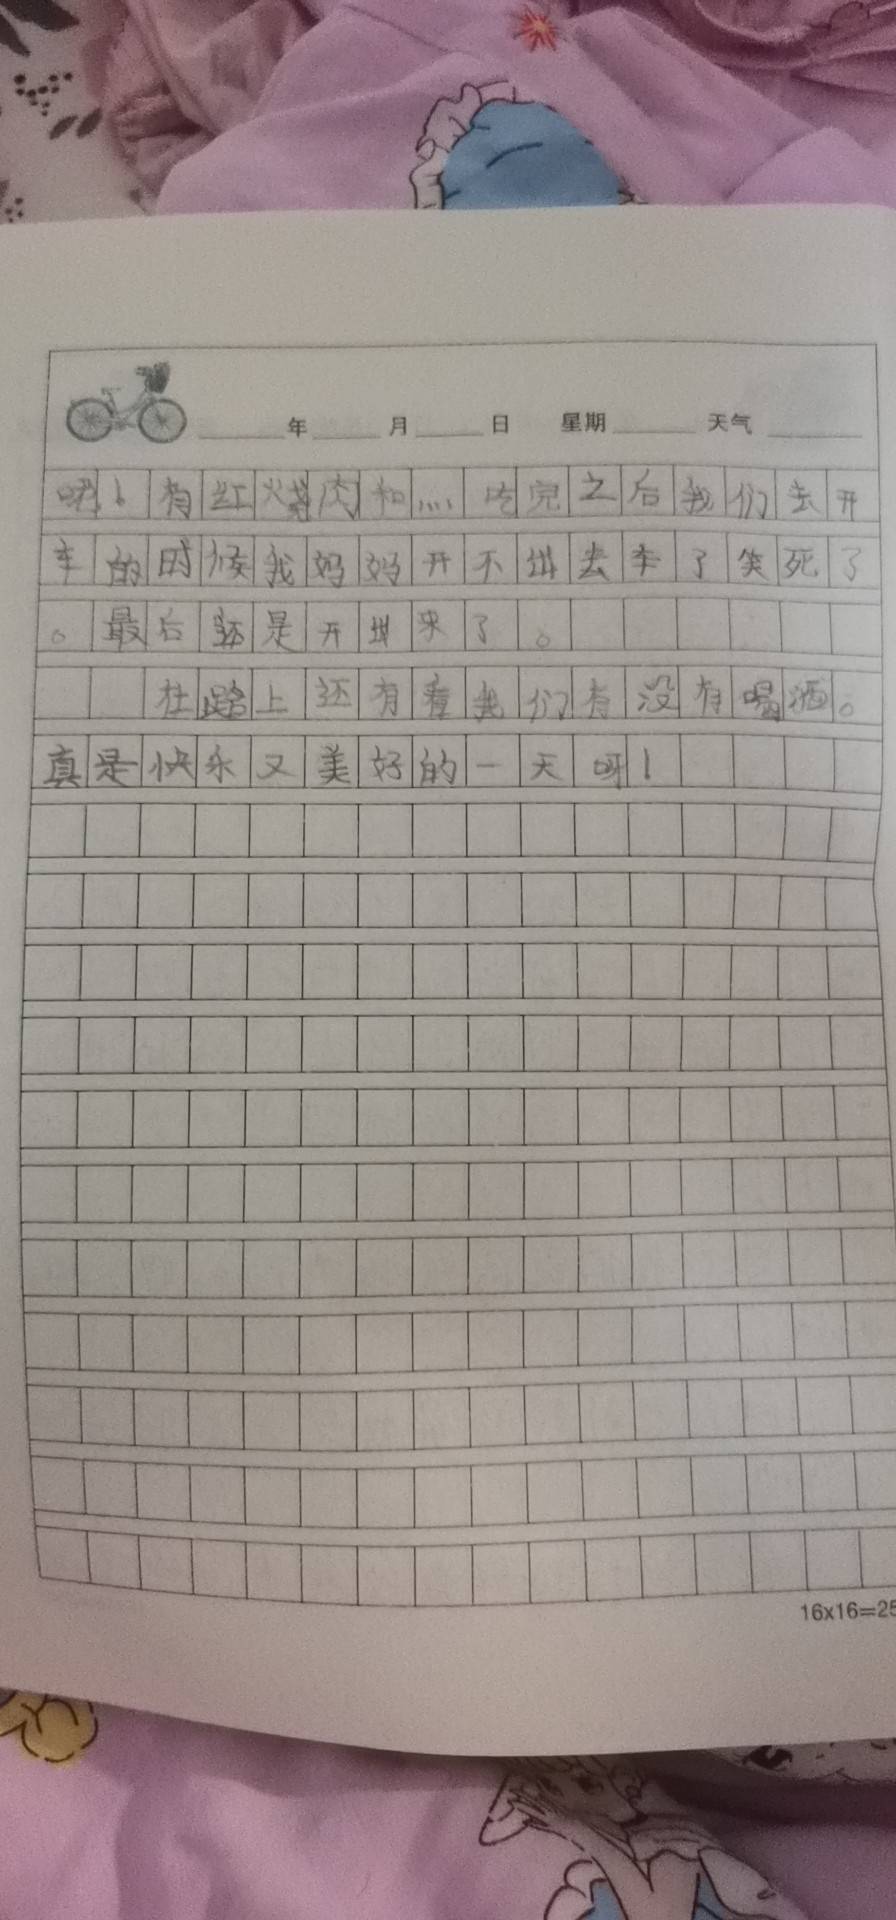 年 月 日 星期 天气
！有红烧肉和……吃完之后我们去开
车的时候我妈妈开不出去车了笑死了
。最后还是开出来了。
在路上还有查我们有没有喝酒。
真是快乐又美好的一天呀！
16x16=25